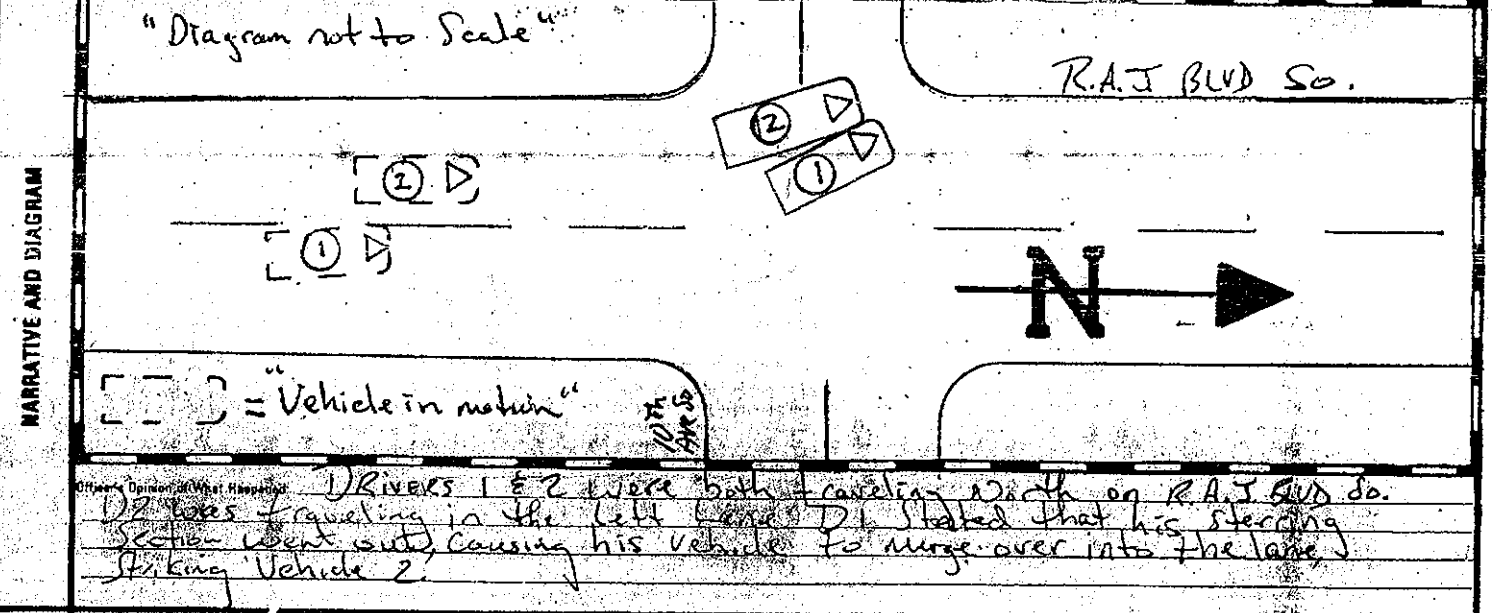 "Diagram not to Scale"
R.A.J BLVD So.
2
1
2
1
N
NARRATIVE AND DIAGRAM
= "Vehicle in motion"
10th
Ave So
Officer's Opinion of What Happened
DRIVERS 1 & 2 were both traveling North on R.A.J BLVD So.
D2 was traveling in the left lane. D1 stated that his steering
section went out, causing his vehicle to merge over into the lane
striking Vehicle 2.